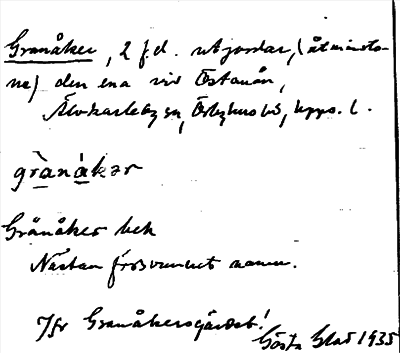 Granåker, 2 f.d. utjordar, (åtminsto-
ne) den ena vid Östanån,
Älvkarleby sn, Örbyhus hd, Upps. l.
grànákər
Granåker bek
Nästan försvunnet namn.
Jfr Granåkersgärdet!
Gösta Glad 1935